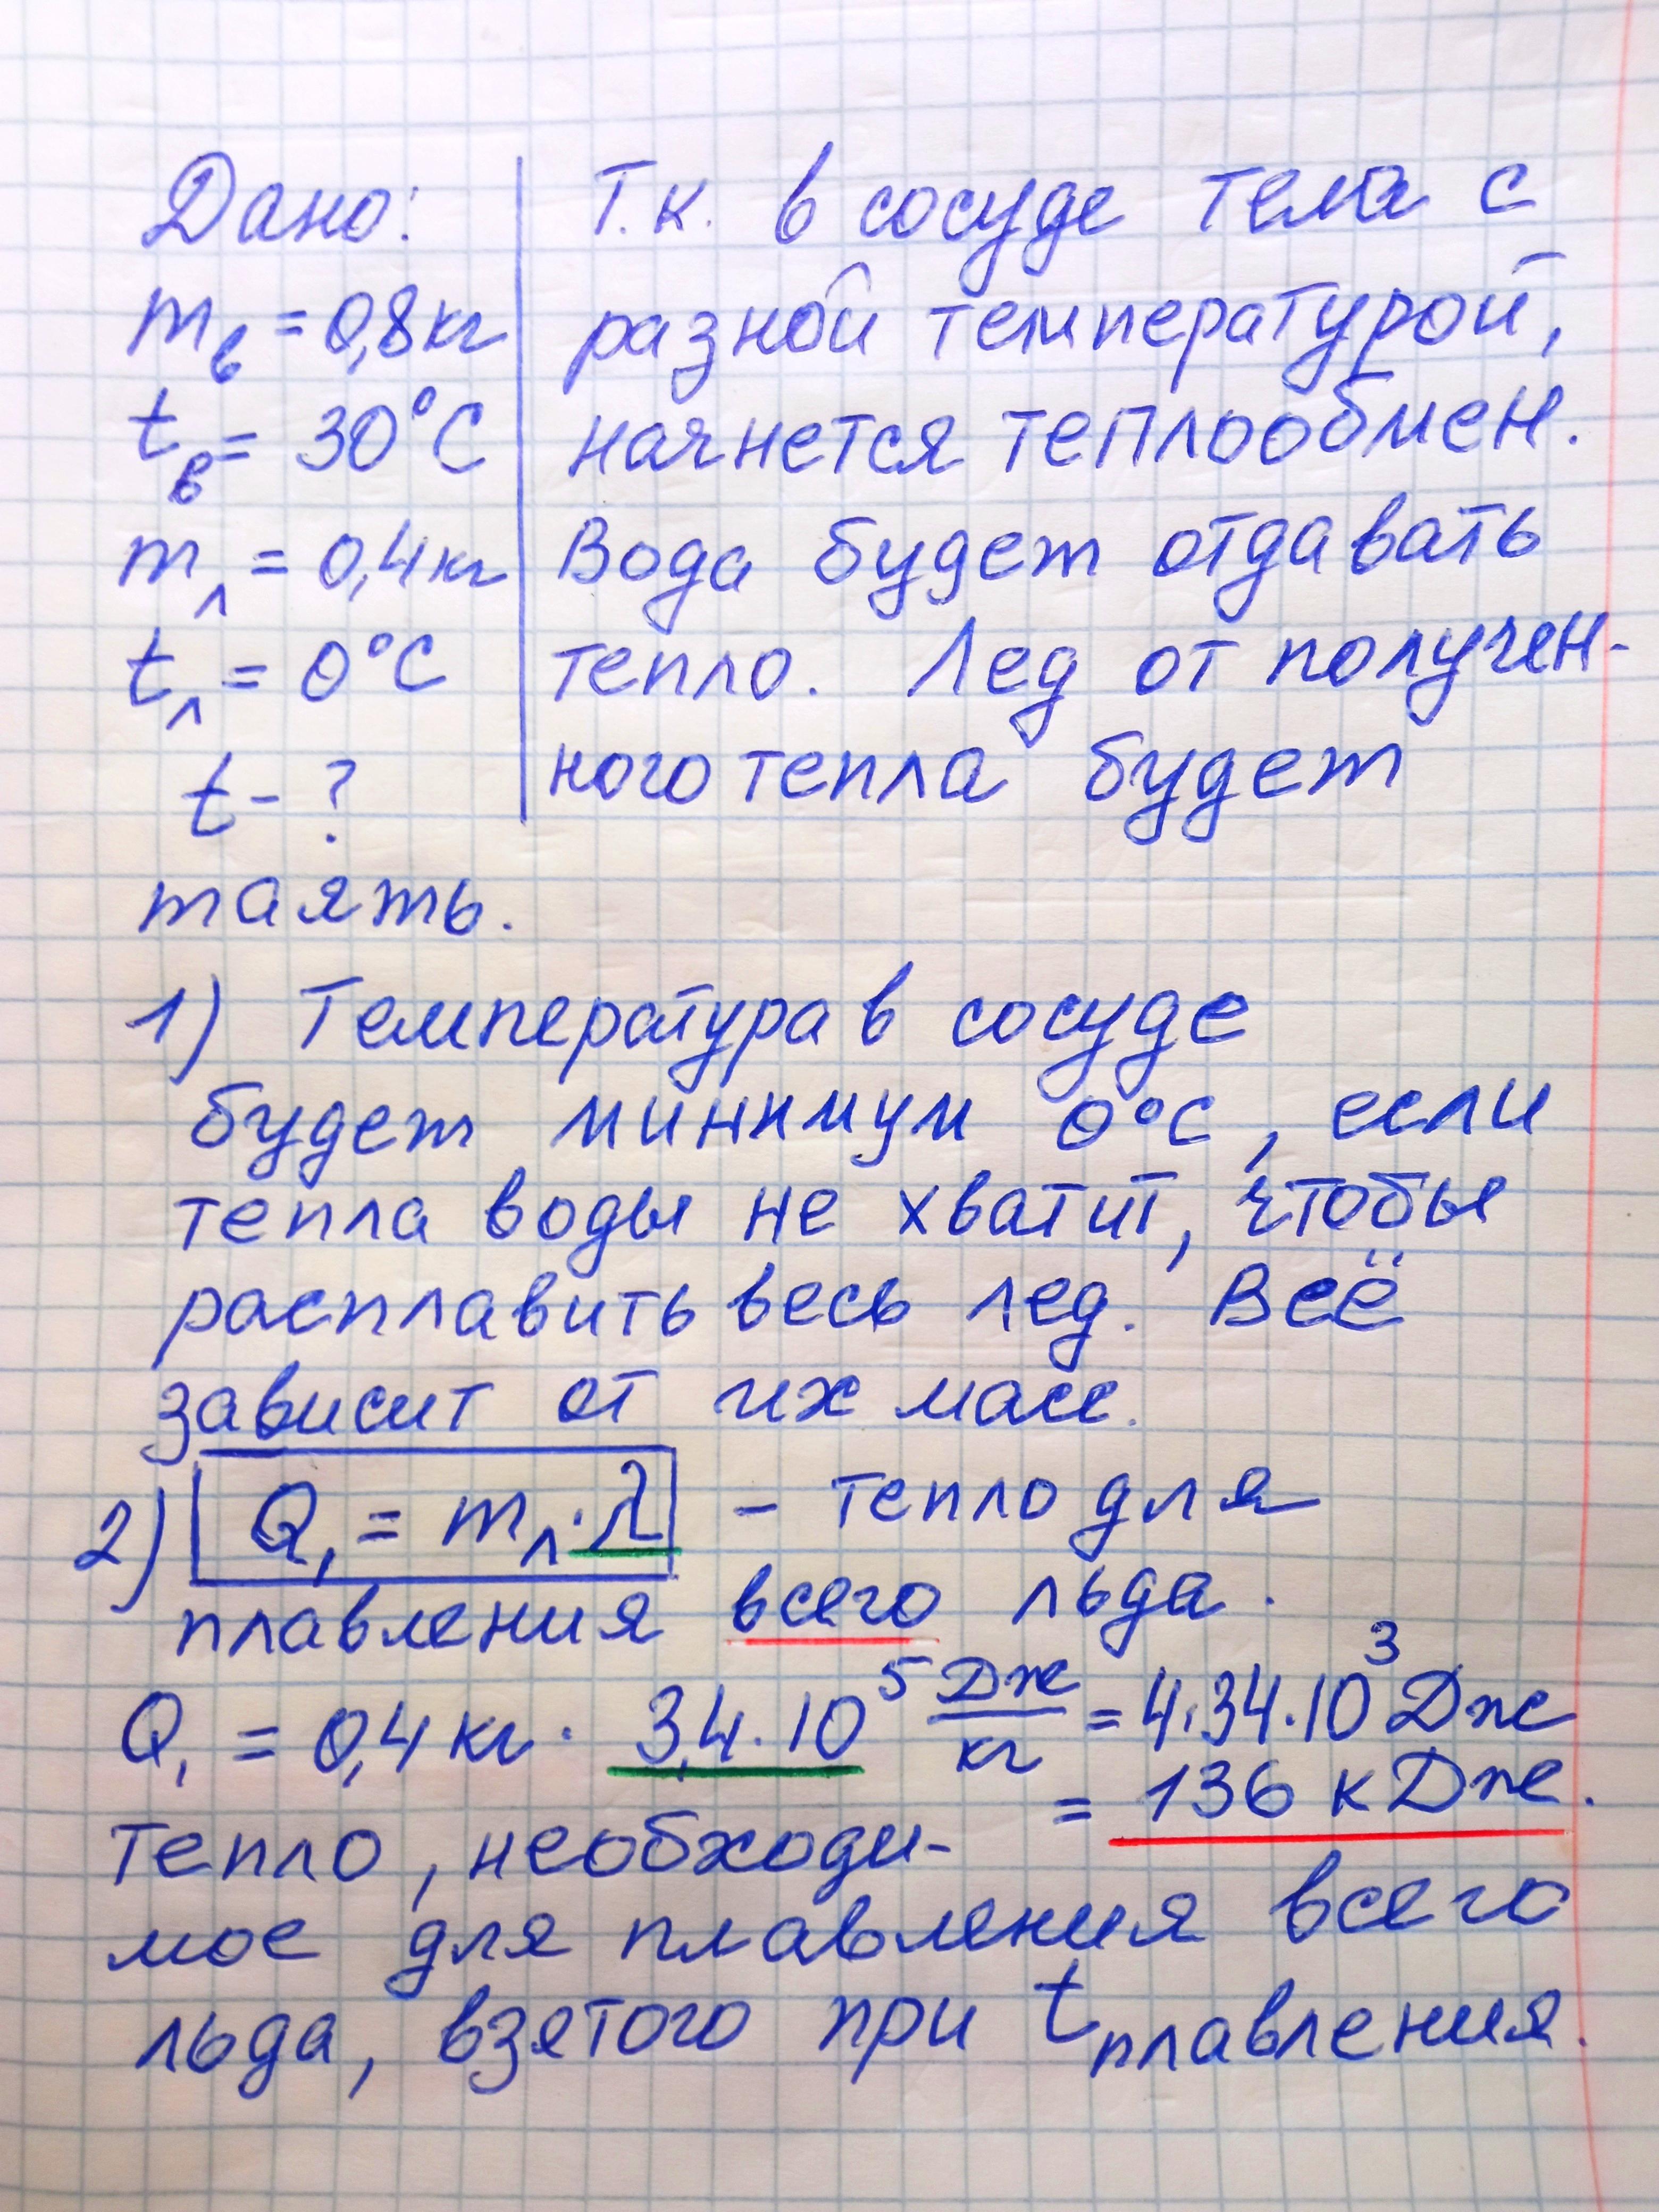 Дано:
m_в = 0,8 кг
t_в = 30°С
m_л = 0,4 кг
t_л = 0°С
t - ?
Т.к. в сосуде тела с
разной температурой,
начнется теплообмен.
Вода будет отдавать
тепло. Лед от получен-
ного тепла будет
таять.
1) Температура в сосуде
будет минимум 0°С, если
тепла воды не хватит, чтобы
расплавить весь лед. Всё
зависит от их масс.
2) Q₁ = m_л · λ - тепло для
плавления всего льда.
Q₁ = 0,4 кг · 3,4 · 10⁵ Дж/кг = 4·34·10³ Дж
= 136 кДж.
Тепло, необходи-
мое для плавления всего
льда, взятого при t плавления.